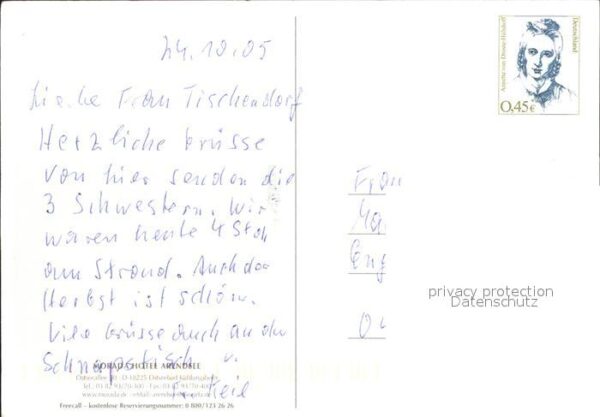 24.10.05
Liebe Frau Tischendorf
Herzliche Grüsse
von hier senden die
3 Schwestern. Wir
waren heute 4 Std
am Strand. Auch der
Herbst ist schön.
Viele Grüsse auch an den
Schnapstisch
Keil
MORADA HOTEL ARENDSEE
Freecall – kostenlose Reservierungsnummer: 0 800/123 26 26
Deutschland
Annette von Droste-Hülshoff
0,45€
Frau
privacy protection
Datenschutz